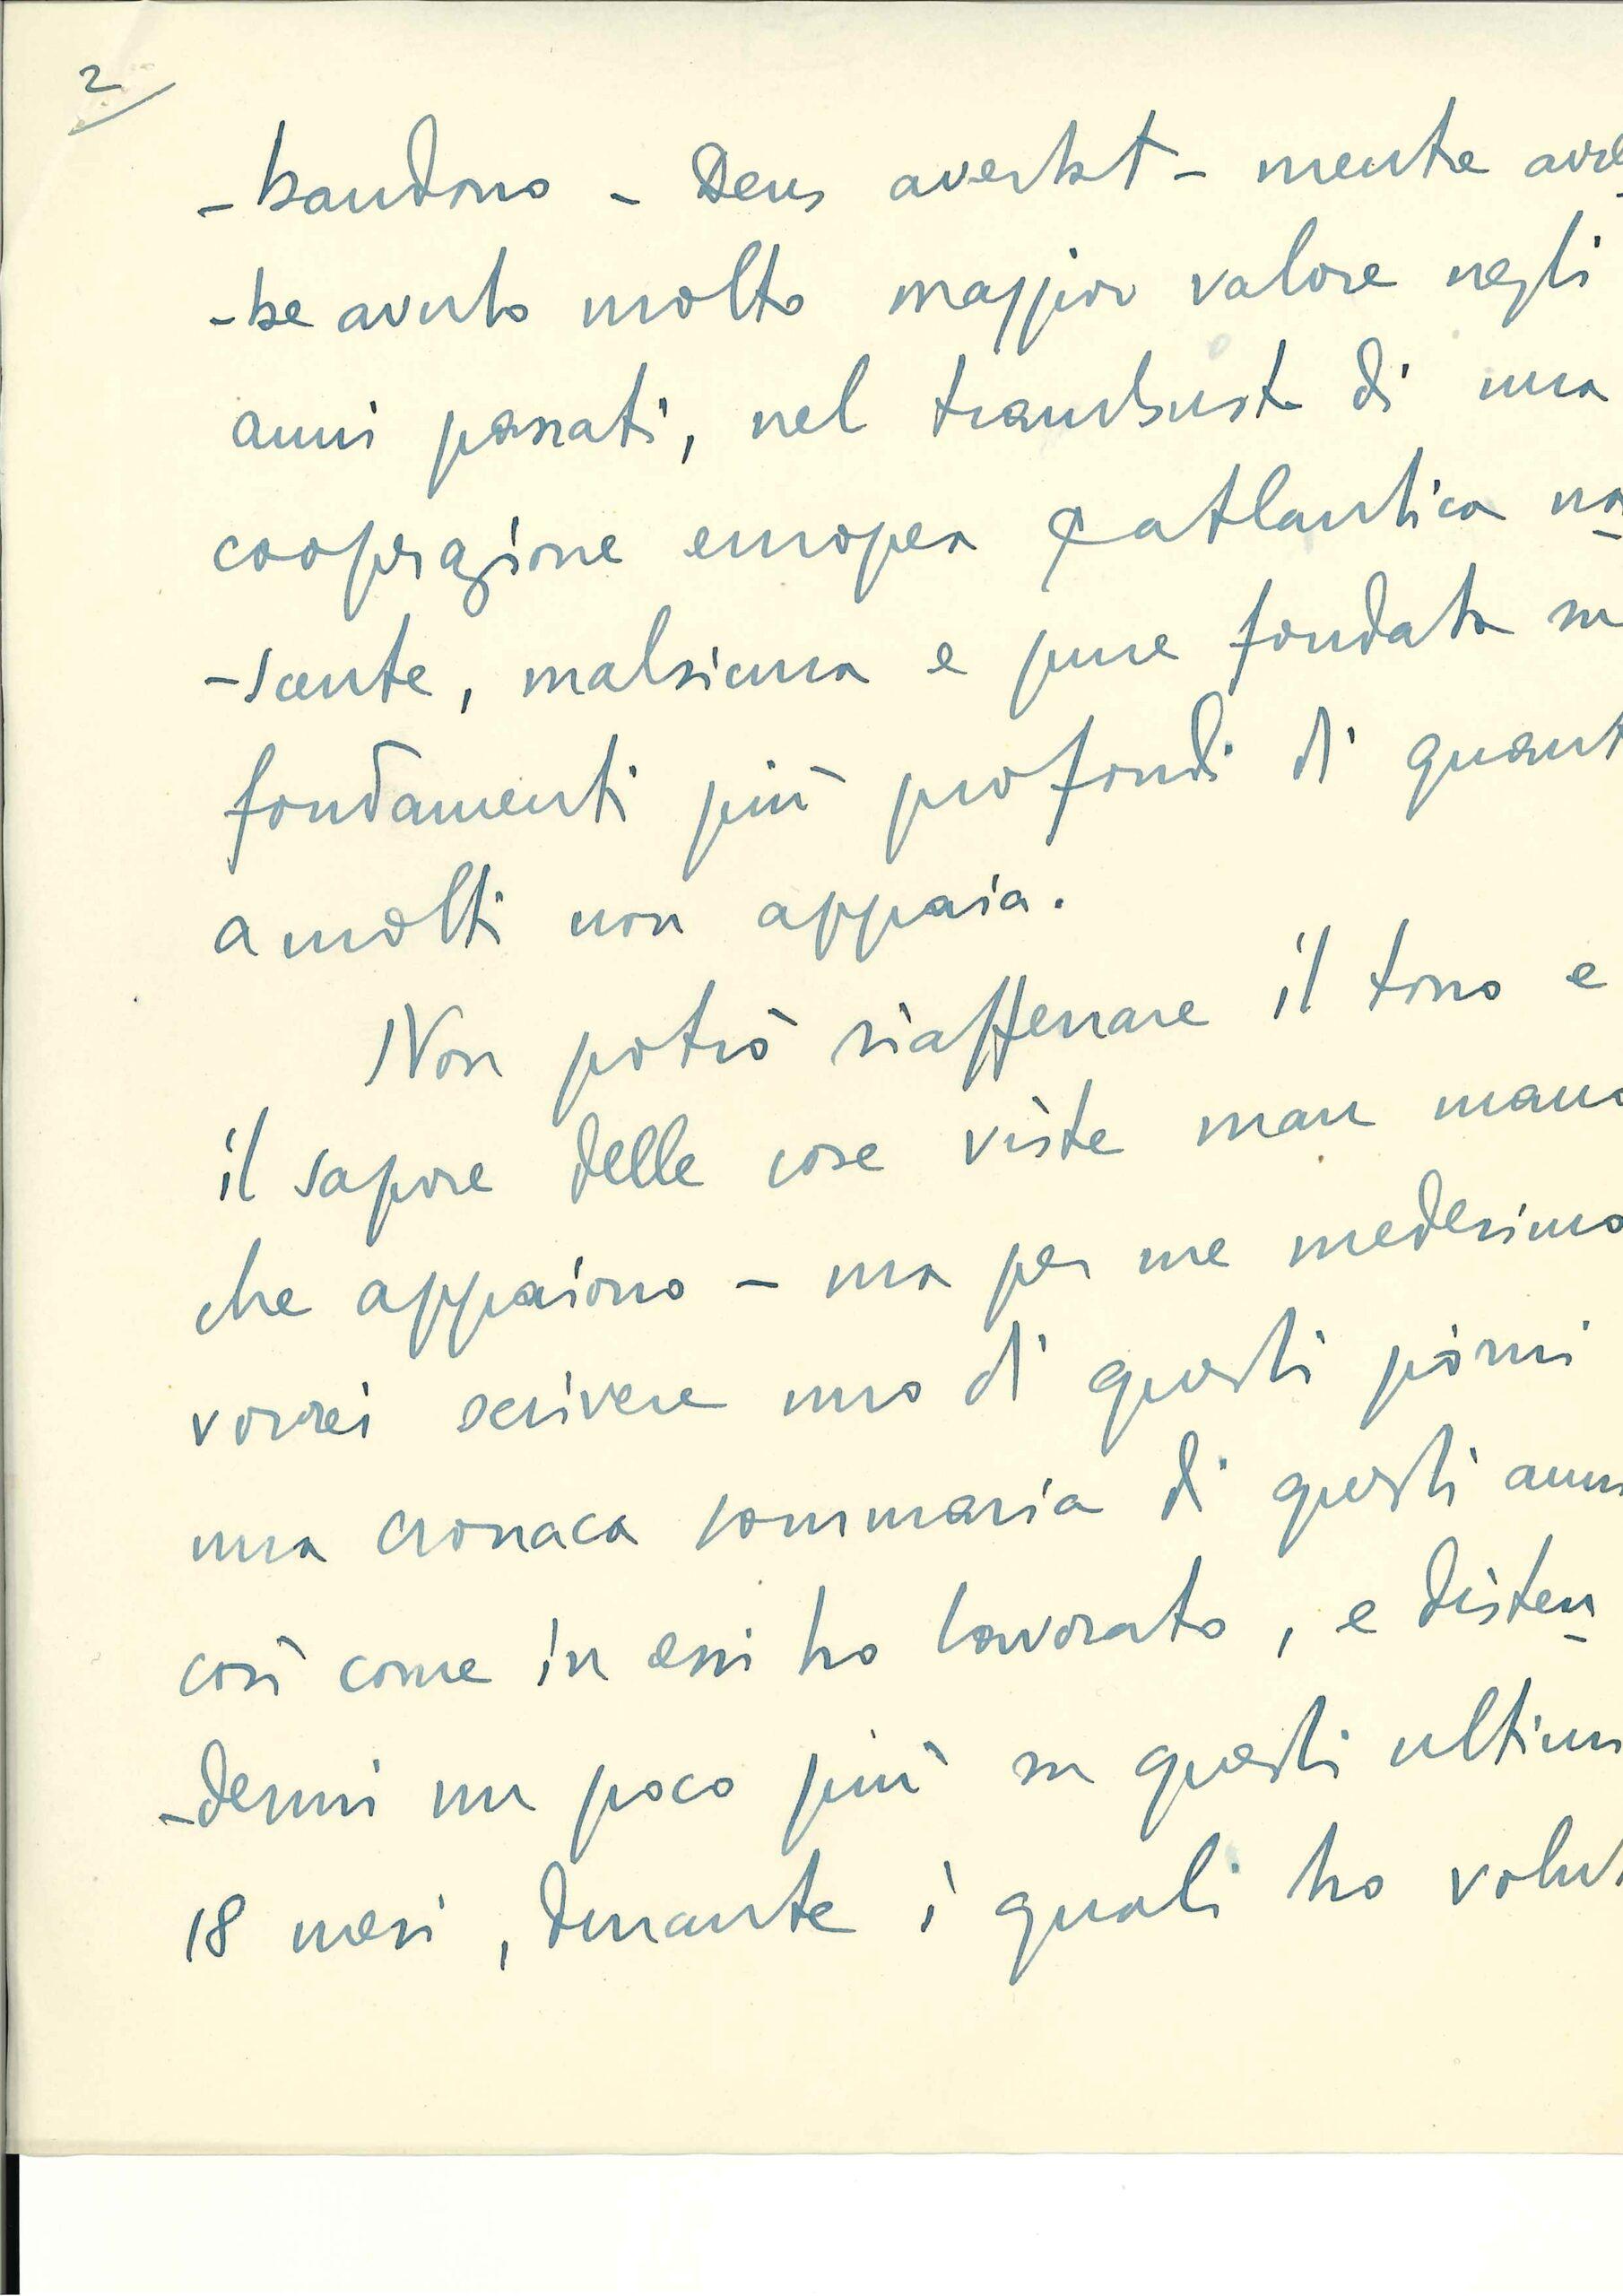 2
-bandono - Deus avertat - mentre avre
-be avuto molto maggior valore negli
anni passati, nel trambusto di una
cooperazione europea e atlantica na
-scente, malsicura e pure fondata su
fondamenti più profondi di quant
a molti non appaia.
Non potrò riafferrare il tono e
il sapore delle cose viste man mano
che appaiono - ma per me medesimo
vorrei scrivere uno di questi giorni
una cronaca sommaria di questi anni
così come in essi ho lavorato, e disten
-dermi un poco più su questi ultimi
18 mesi, durante i quali ho volut